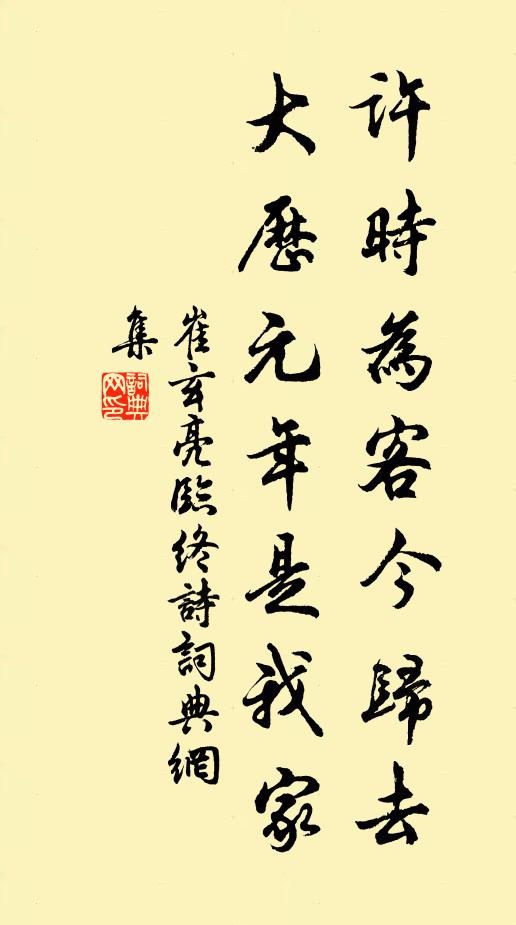 許時為客今歸去
大歷元年是我家
崔玄亮臨終詩詞典網
集
詞典
网印